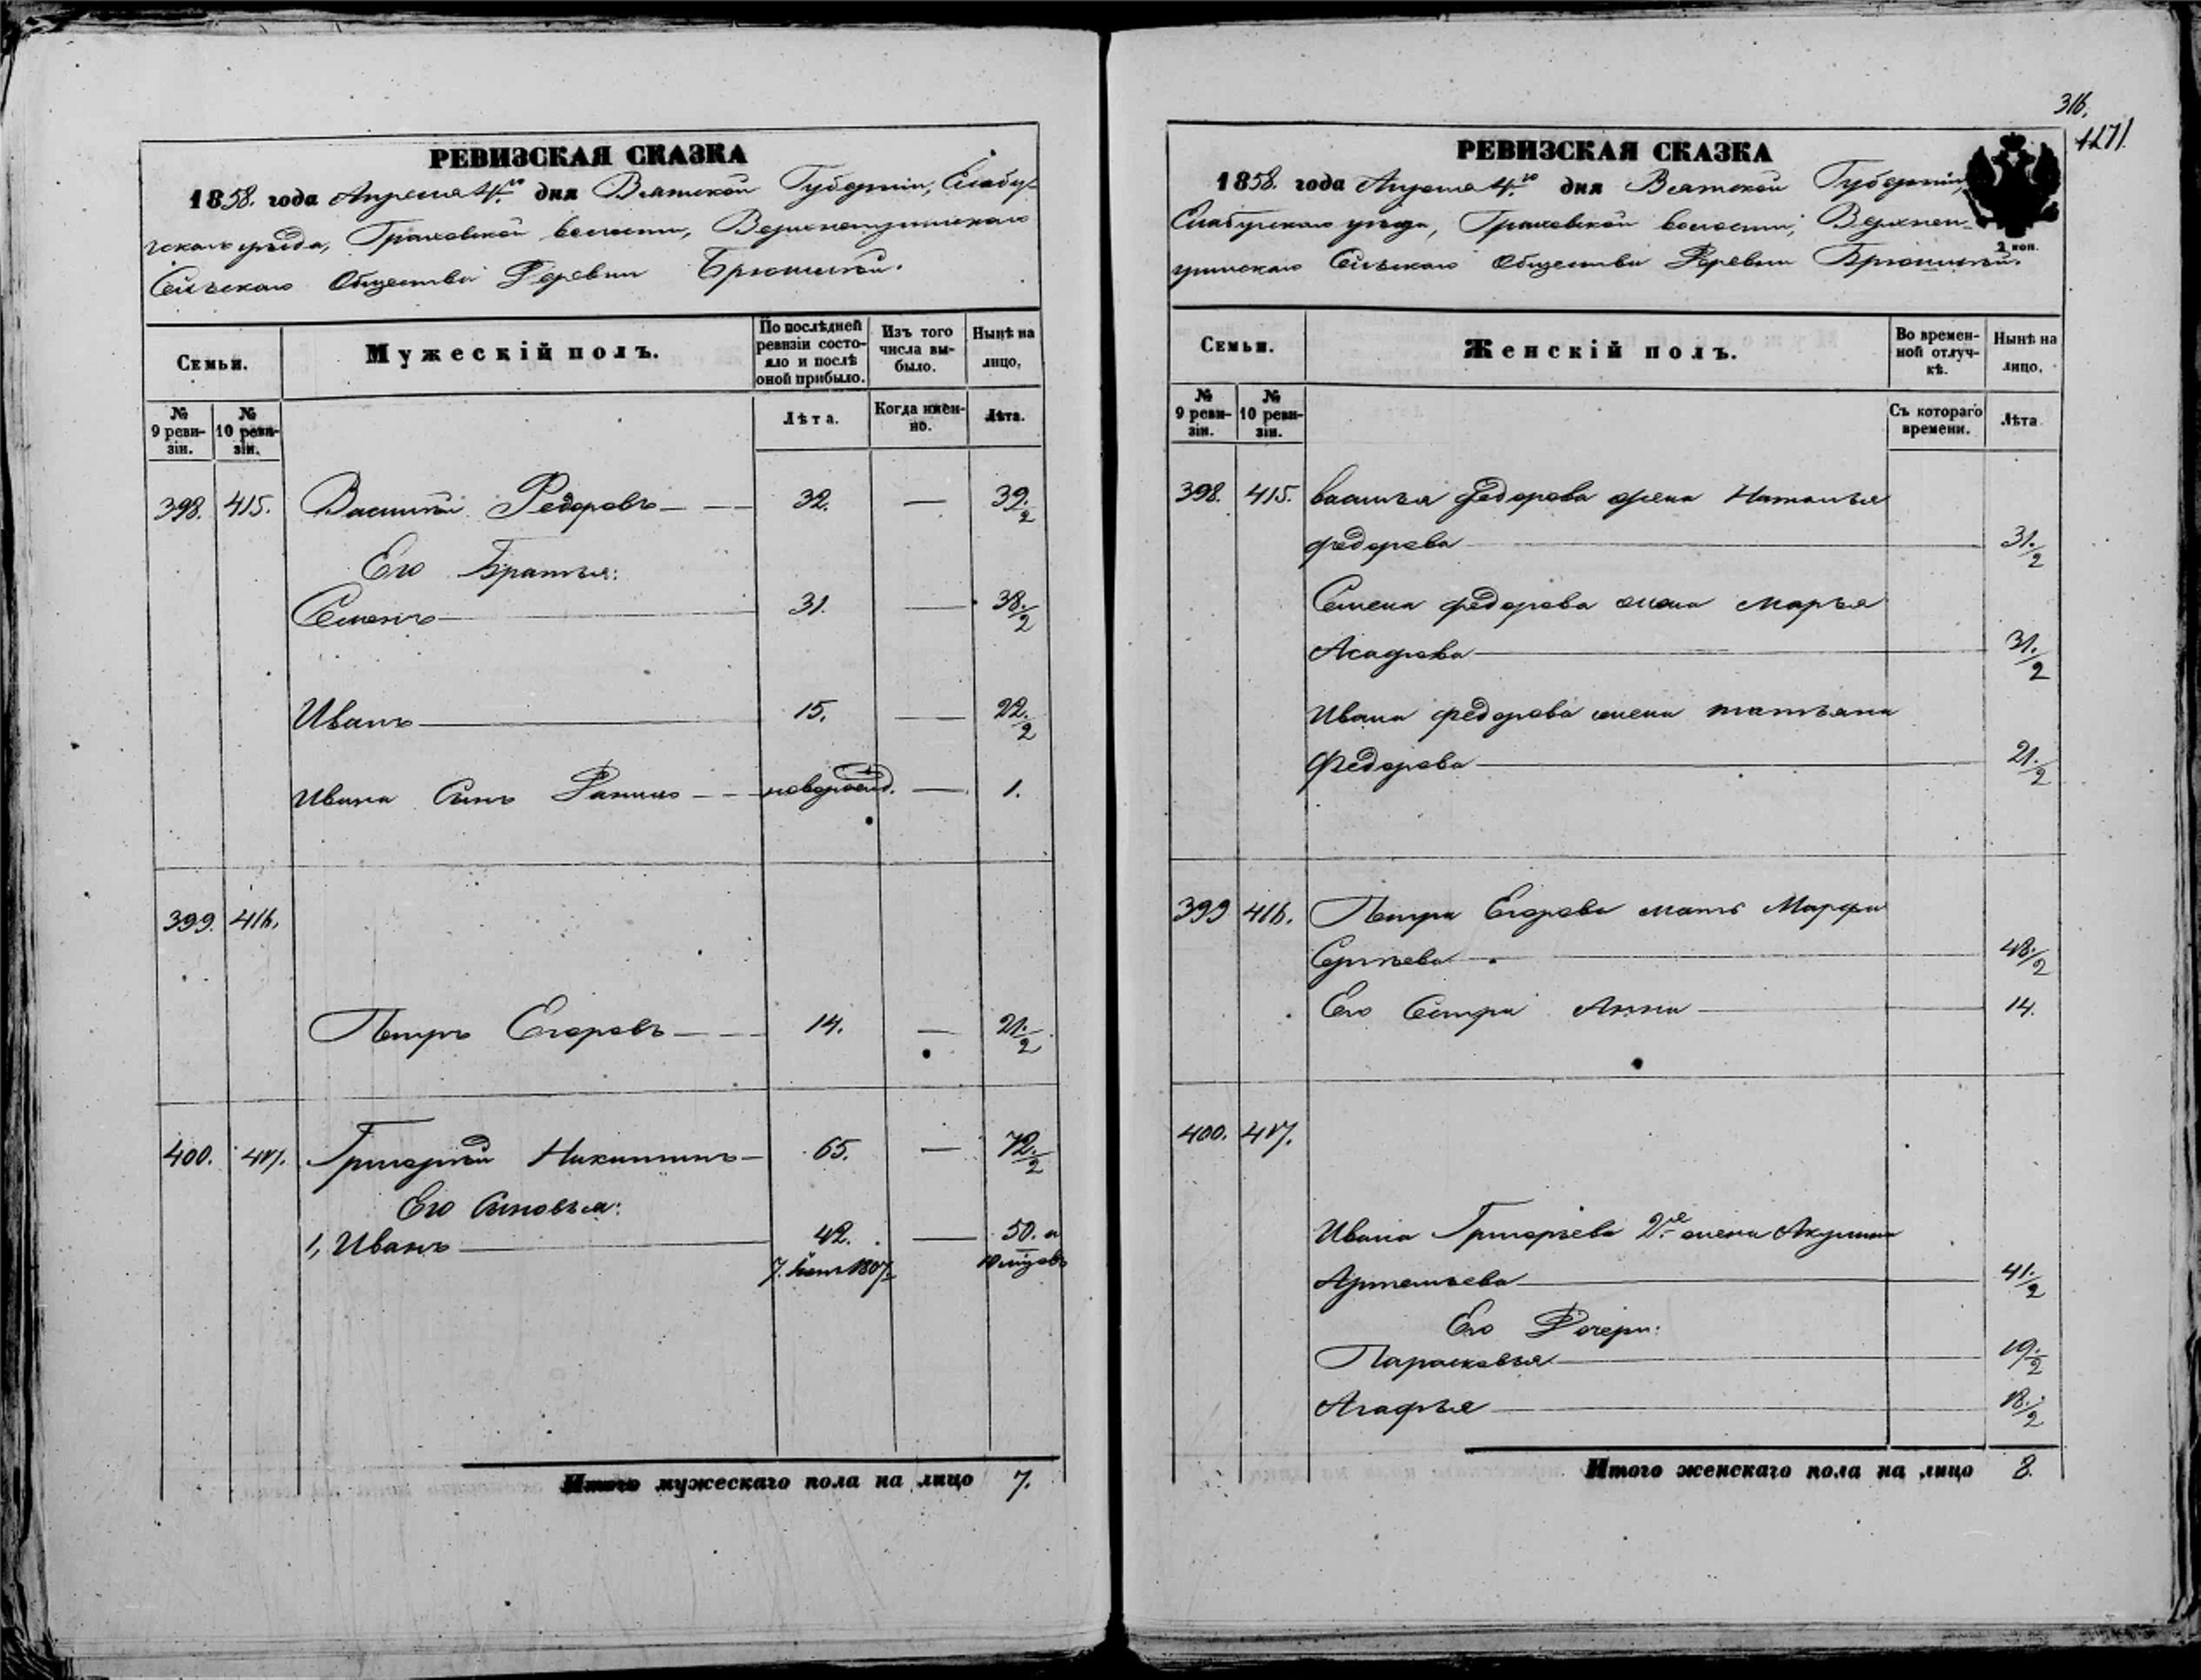 РЕВИЗСКАЯ СКАЗКА
1858. года Апреля 4.го дня Вятской Губерніи, Елабу-
жскаго уѣзда, Граховской волости,
Сельскаго Общества Деревни Брюшли.
Семьи.
Мужескій полъ.
По послѣдней ревизіи состояло и послѣ оной прибыло.
Изъ того числа выбыло.
Нынѣ на лицо.
№ 9 ревизіи.
№ 10 ревизіи.
Лѣта.
Когда именно.
Лѣта.
398. 415. Василій Федоровъ — 32. — 39./2
Его Братья:
Семенъ — 31. — 38./2
Иванъ — 15. — 22./2
Ивана Сынъ Данило — новорожд. — 1.
399. 416.
Петръ Егоровъ — 14. — 21./2
400. 417. Григорій Никитинъ — 65. — 72./2
Его Сыновья:
1, Иванъ — 42. — 50. и
316.
1171.
РЕВИЗСКАЯ СКАЗКА
1858. года Апреля 4.го дня Вятской Губерніи,
Елабужскаго уѣзда, Граховской волости,
Сельскаго Общества Деревни
2 коп.
Семьи.
Женскій полъ.
Во временной отлучкѣ.
Нынѣ на лицо.
№ 9 ревизіи.
№ 10 ревизіи.
Съ котораго времени.
Лѣта
398. 415. Василья Федорова жена Наталья
Федорова — 31./2
Семена Федорова жена Марья
31./2
Ивана Федорова жена Татьяна
Федорова — 21./2
399 416. Петра Егорова мать Марфа
Сергѣева — 48./2
Его Сестра Анна — 14.
400. 417.
Ивана Григорьева 2.е жена Акулина
Артемьева — 41./2
Его Дочери:
Парасковья — 19./2
Агафья — 18./2
Итого мужескаго пола на лицо 7.
Итого женскаго пола на лицо 8.